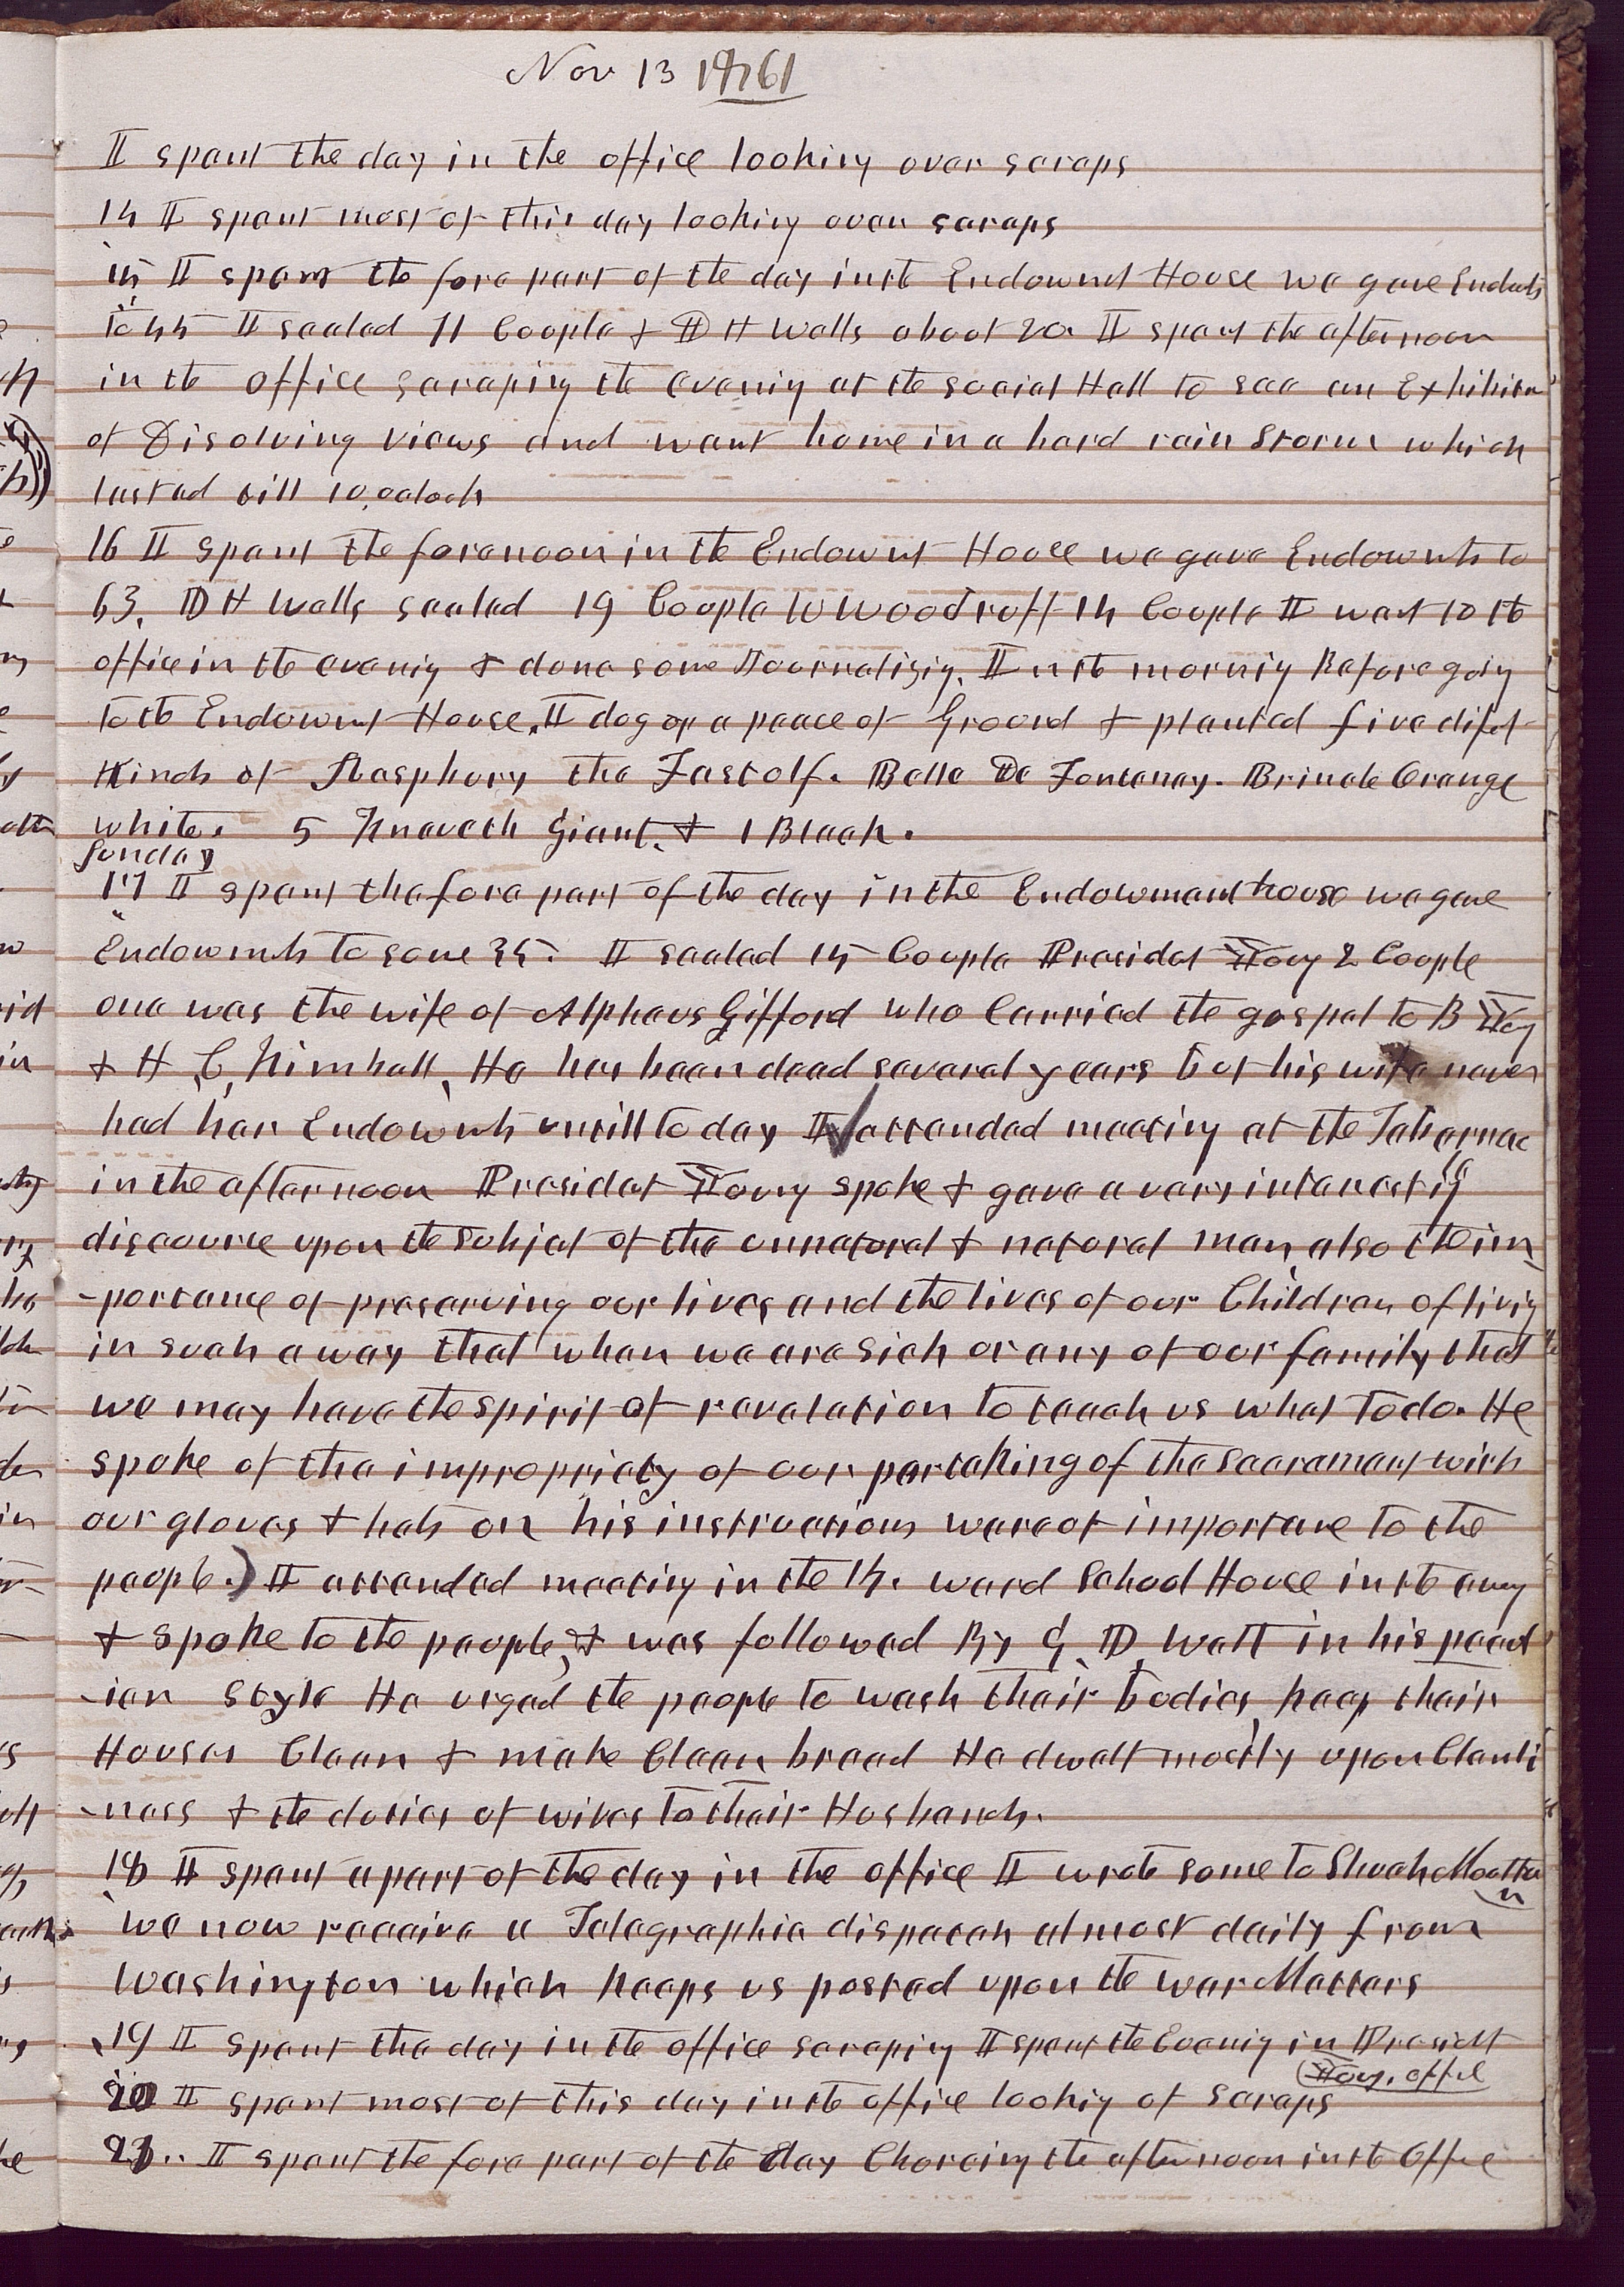 Nov 13 1861
I spent the day in the office looking over scraps
14 I spent most of this day looking over scraps
15 I spent the fore part of the day in the Endowmt House we gave Endowmts
to 45 I sealed 11 Couple & D H Wells about 20. I spent the afternoon
in the office scraping the evenig at the social Hall to see an Exhibitn
of Disolving views and went home in a hard rain storm which
lasted till 10, oclock
16 I spent the forenoon in the Endowmt House we gave Endowmts to
63. D H Wells sealed 19 Couple W Woodruff 14 Couple I went to the
office in the evenig & done some Journalizig. In the mornig Before goig
to the Endowmt House. I dug up a peace of Ground & planted five difft
Kinds of Raspbury the Fastolf. Belle De Fontenay. Brincle Orange
white. 5 Kneveth Giant, & 1 Black.
Sunday
17 I spent the fore part of the day in the Endowment house we gave
Endowmts to some 35. I sealed 15 Couple Presidet Young 2 Couple
one was the wife of Alpheus Gifford who Carried the gospel to B Young
& H, C, Kimball, He has been dead several years but his wife never
had her Endowmts untill to day I attended meeting at the Tabernac
le
in the afternoon Presidet Young spoke & gave a very interestig
discource upon the subject of the unnatural & natural man, also the im
-portance of preserving our lives and the lives of our Children of livig
in such a way that when we are sick or any of our family that
we may have the spirit of revelation to teach us what to do. He
spoke of the impropriety of our partaking of the sacrament with
our gloves & hats on his instructions ware of importance to the
people.) I attended meeting in the 14. ward School House in the eveng
& spoke to the people, & was followed By G. D. Watt in his pecul
-iar style He urged the people to wash their bodies, keep their
Houses Clean & make Clean bread He dwelt mostly upon Clenli
-ness & the duties of wives to their Husbands.
18 I spent a part of the day in the office I wrote some to
we now receive a Telegraphic dispatch almost daily from
Washington which keeps us posted upon the war Matters
19 I spent the day in the office scraping I spent the Evenig in Presidt
Young, office
20 I spent most of this day in the office lookig of scraps
21.. I spent the fore part of the day Choreing the afternoon in the Office